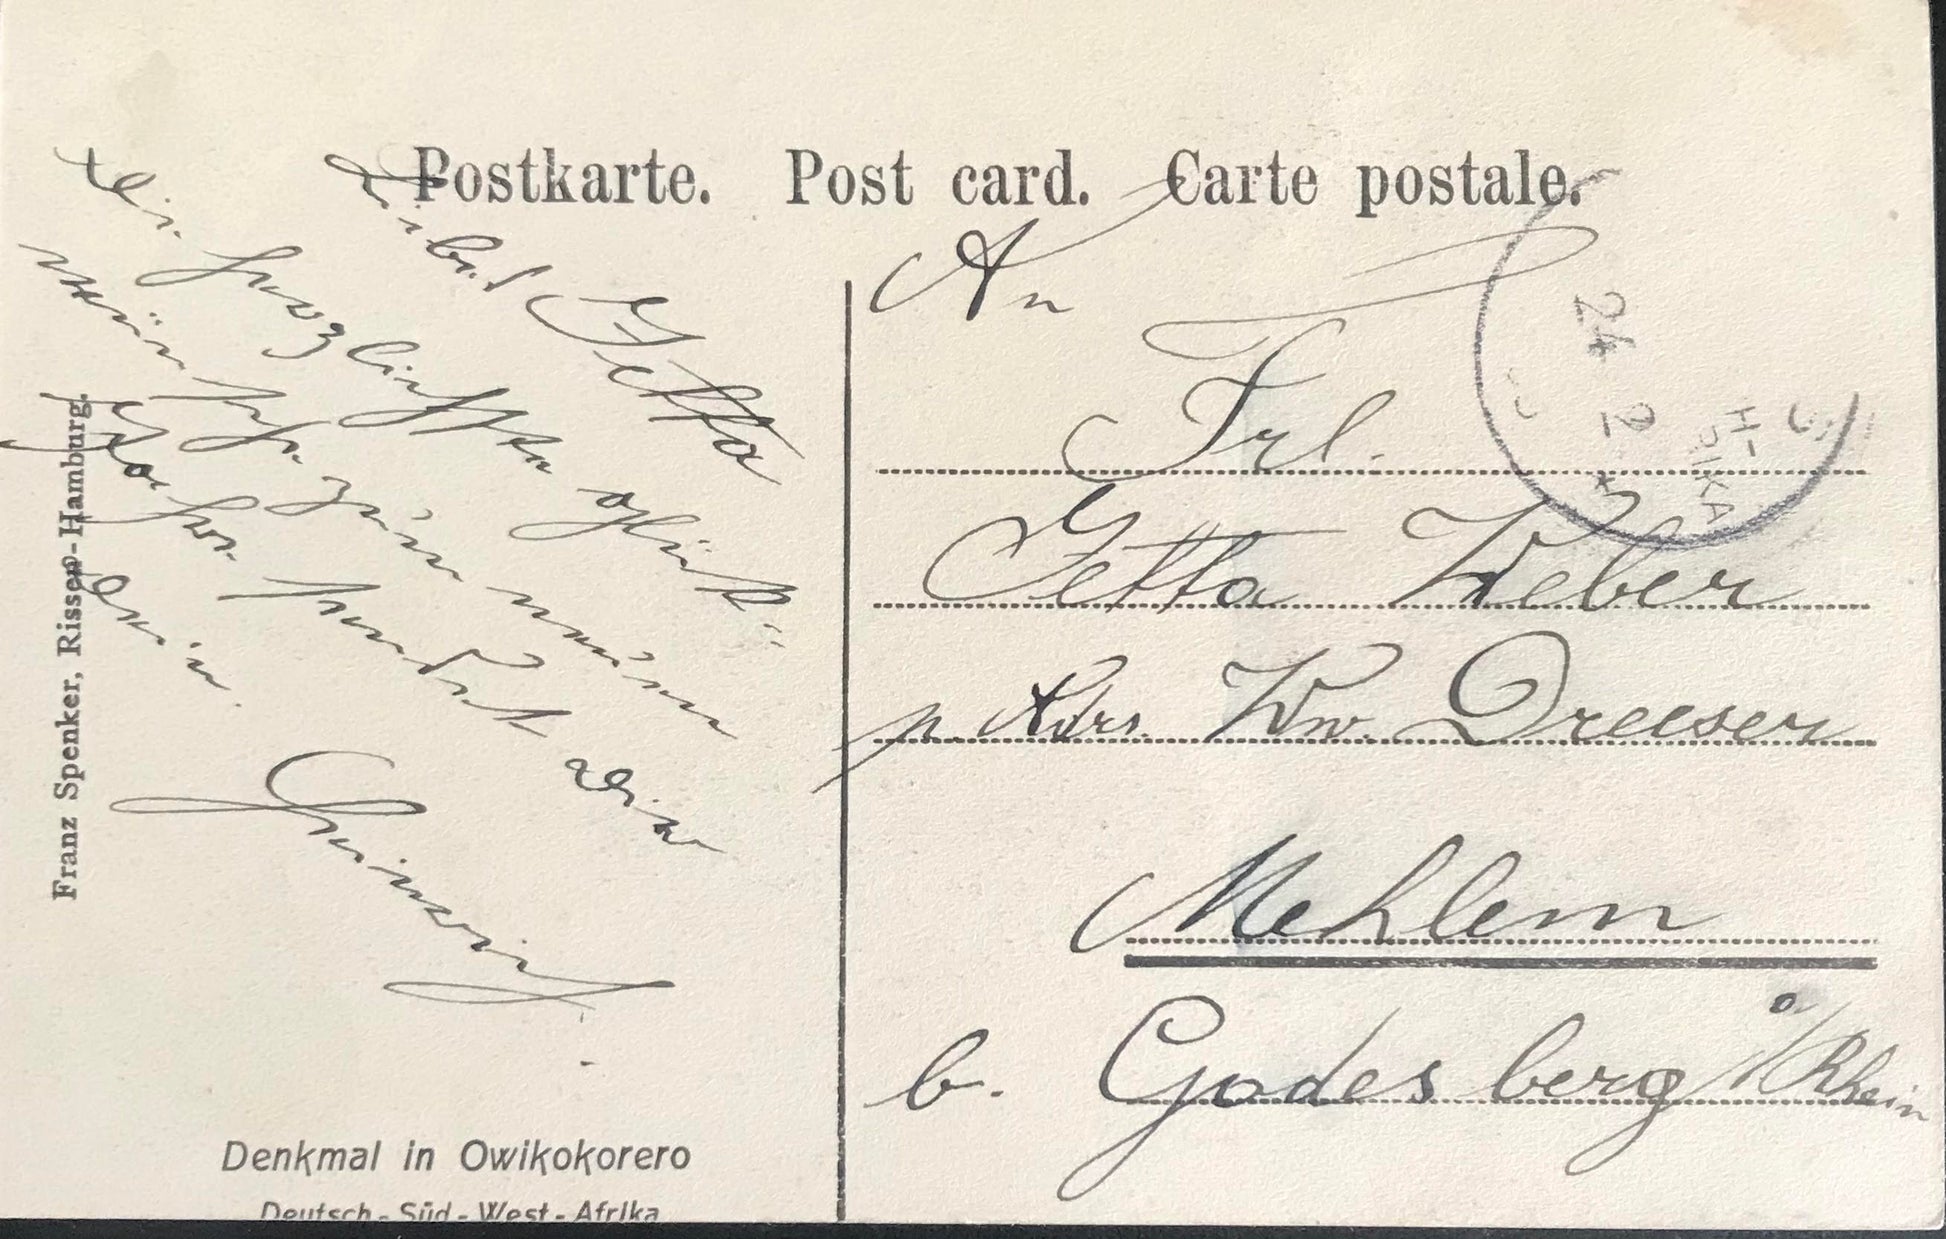 Postkarte. Post card. Carte postale.
Liebes Jetta
Die herzlichsten Glück-
wünsche zum neuen
Jahre sendet
Dein
Franz Spenker, Rissen-Hamburg.
Denkmal in Owikokorero
Deutsch-Süd-West-Afrika
An
Frl.
Jetta Weber
p. Adrs. Ww. Dreesen
Mehlem
b. Godesberg a/Rhein
24 2
H-
RIKA